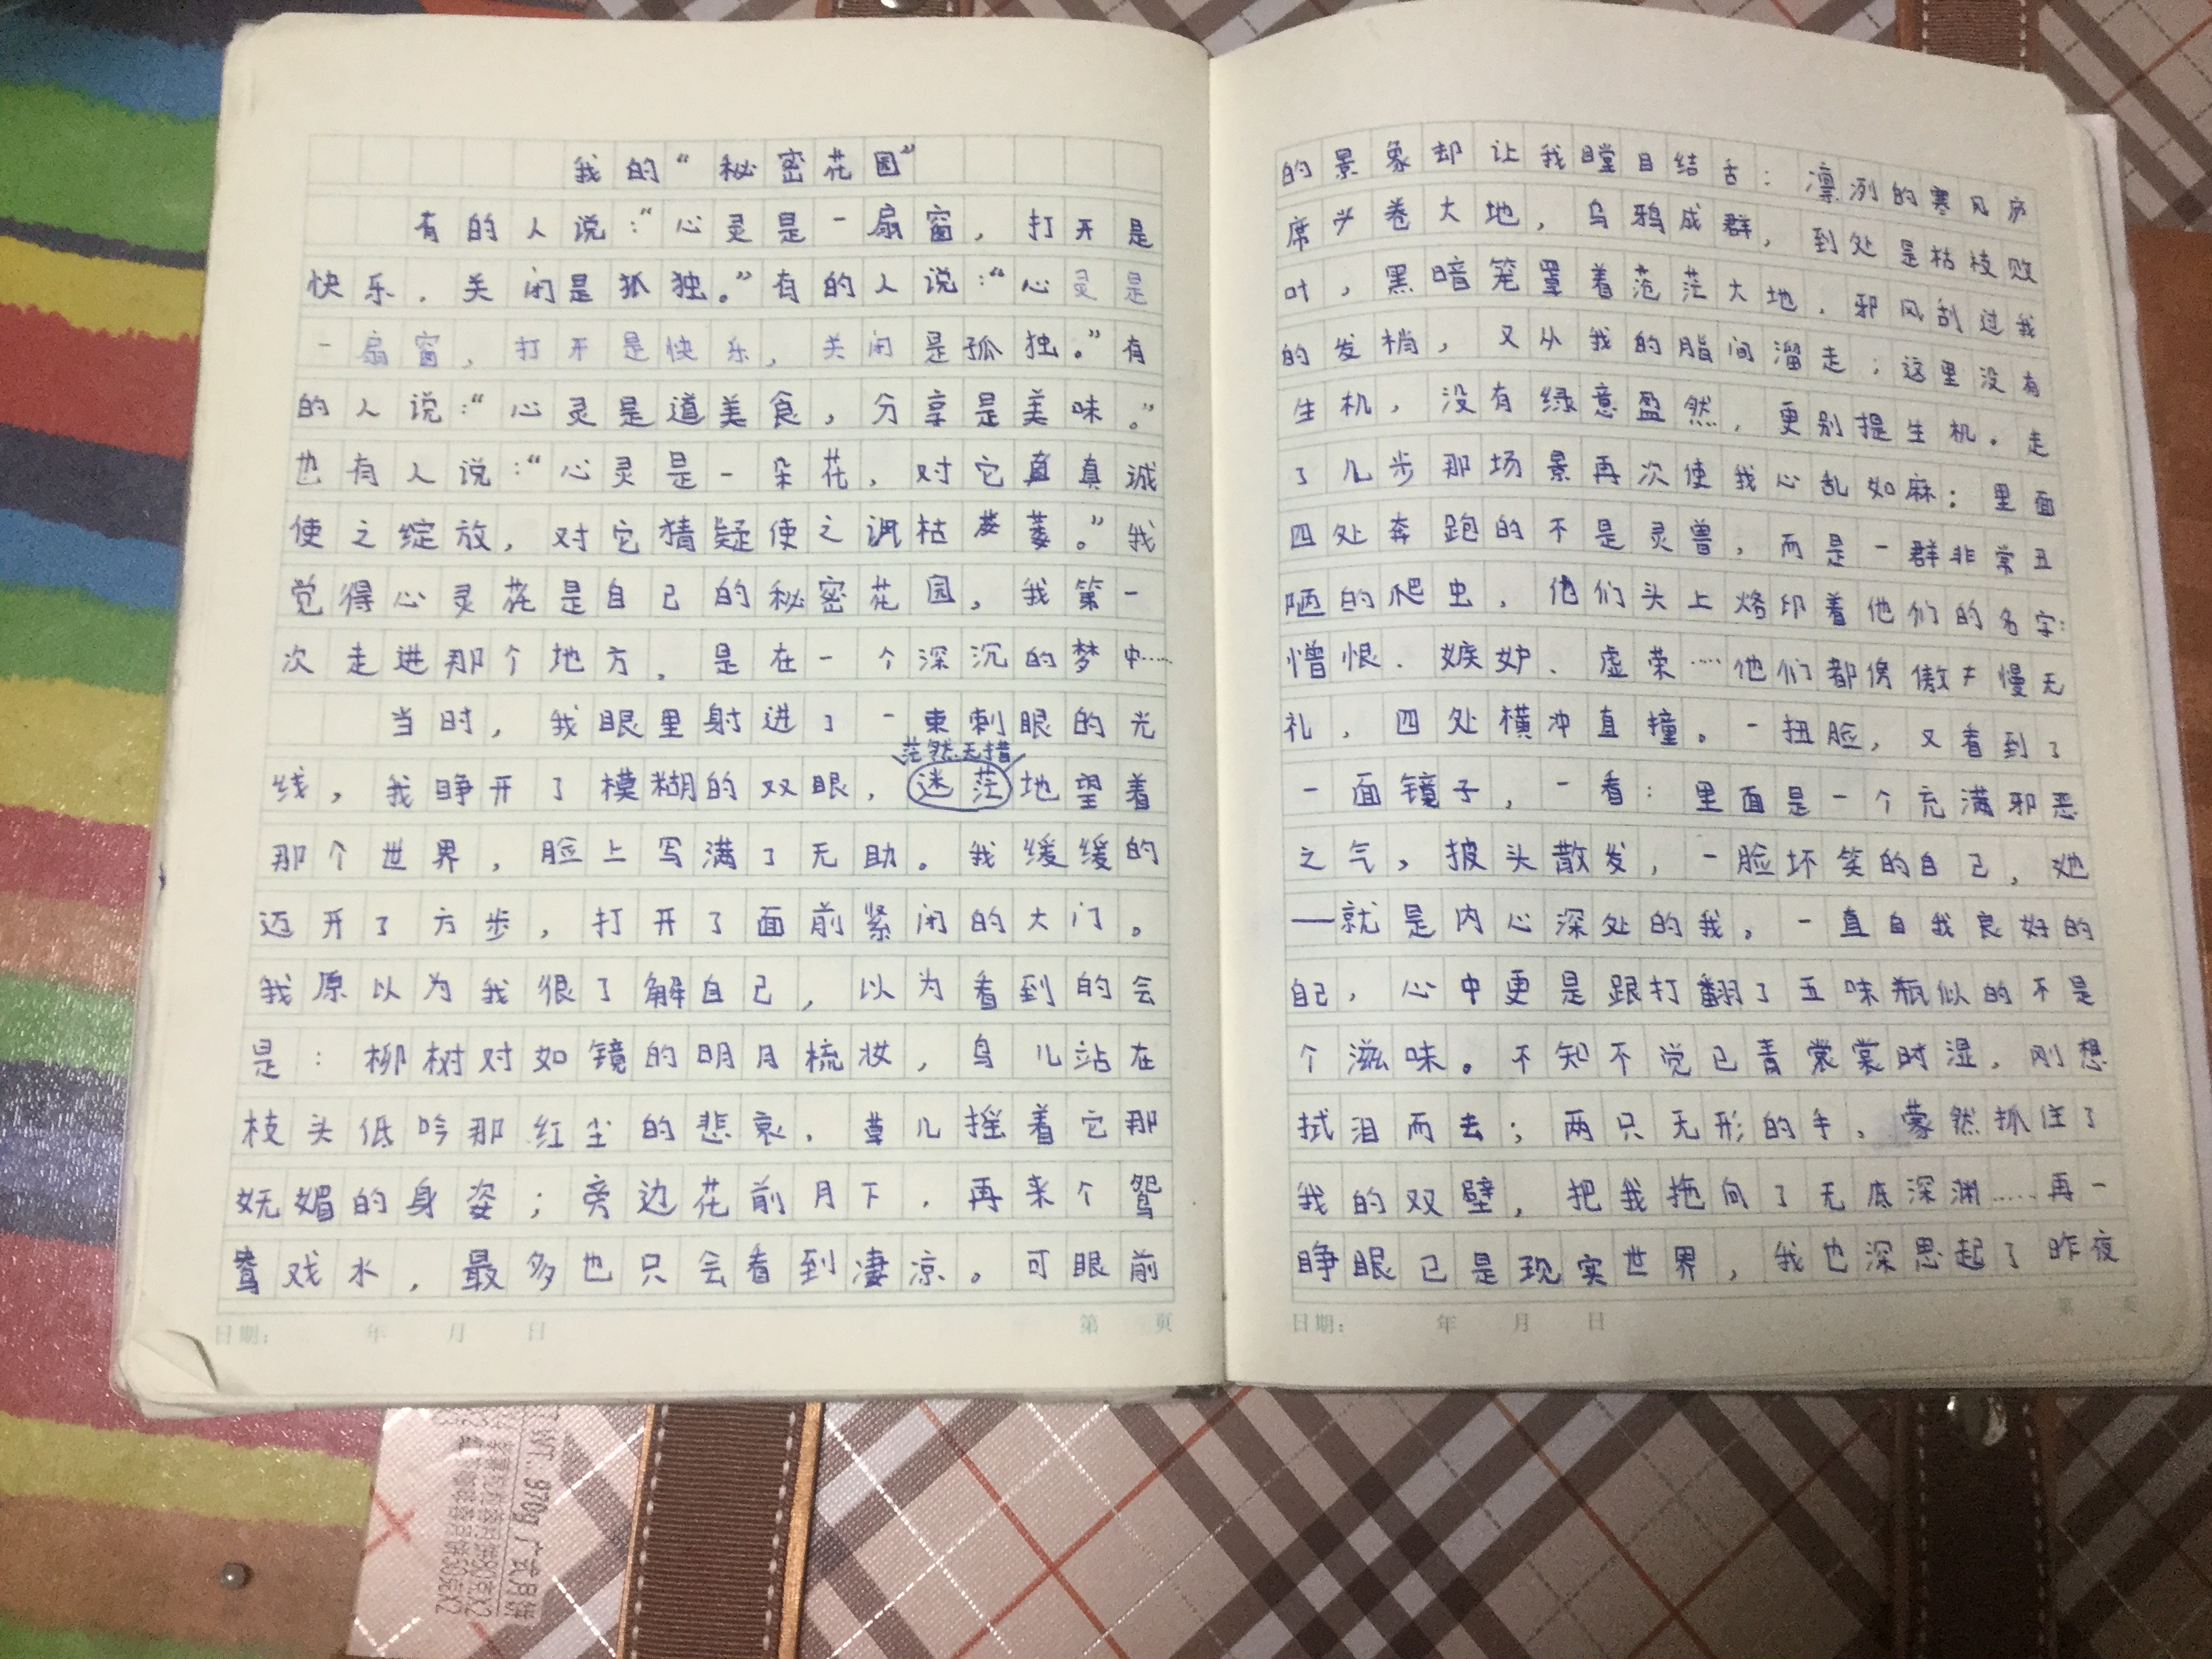 我的“秘密花园”
有的人说：“心灵是一扇窗，打开是
快乐，关闭是孤独。”有的人说：“心灵是
一扇窗，打开是快乐，关闭是孤独。”有
的人说：“心灵是道美食，分享是美味。”
也有人说：“心灵是一朵花，对它真诚
使之绽放，对它猜疑使之凋枯萎。”我
觉得心灵花是自己的秘密花园，我第一
次走进那个地方，是在一个深沉的梦中……
当时，我眼里射进了一束刺眼的光
茫然无措
线，我睁开了模糊的双眼，迷茫地望着
那个世界，脸上写满了无助。我缓缓的
迈开了方步，打开了面前紧闭的大门。
我原以为我很了解自己，以为看到的会
是：柳树对如镜的明月梳妆，鸟儿站在
枝头低吟那红尘的悲哀，草儿摇着它那
妩媚的身姿；旁边花前月下，再来个鸳
鸯戏水，最多也只会看到凄凉。可眼前
的景象却让我瞠目结舌：凛冽的寒风
席卷大地，乌鸦成群，到处是枯枝败
叶，黑暗笼罩着茫茫大地，邪风刮过我
的发梢，又从我的脂间溜走；这里没有
生机，没有绿意盈然，更别提生机。走
了几步那场景再次使我心乱如麻：里面
四处奔跑的不是灵兽，而是一群非常丑
陋的爬虫，他们头上烙印着他们的名字：
憎恨、嫉妒、虚荣……他们都傲慢无
礼，四处横冲直撞。一扭脸，又看到了
一面镜子，一看：里面是一个充满邪恶
之气，披头散发，一脸坏笑的自己，她
——就是内心深处的我。一直自我良好的
自己，心中更是跟打翻了五味瓶似的不是
个滋味。不知不觉已青裳时湿，刚想
拭泪而去；两只无形的手，蒙然抓住了
我的双壁，把我拖向了无底深渊……再一
睁眼已是现实世界，我也深思起了昨夜
日期： 年 月 日 第 页
日期： 年 月 日 第 页
WT. 970g 广式月饼